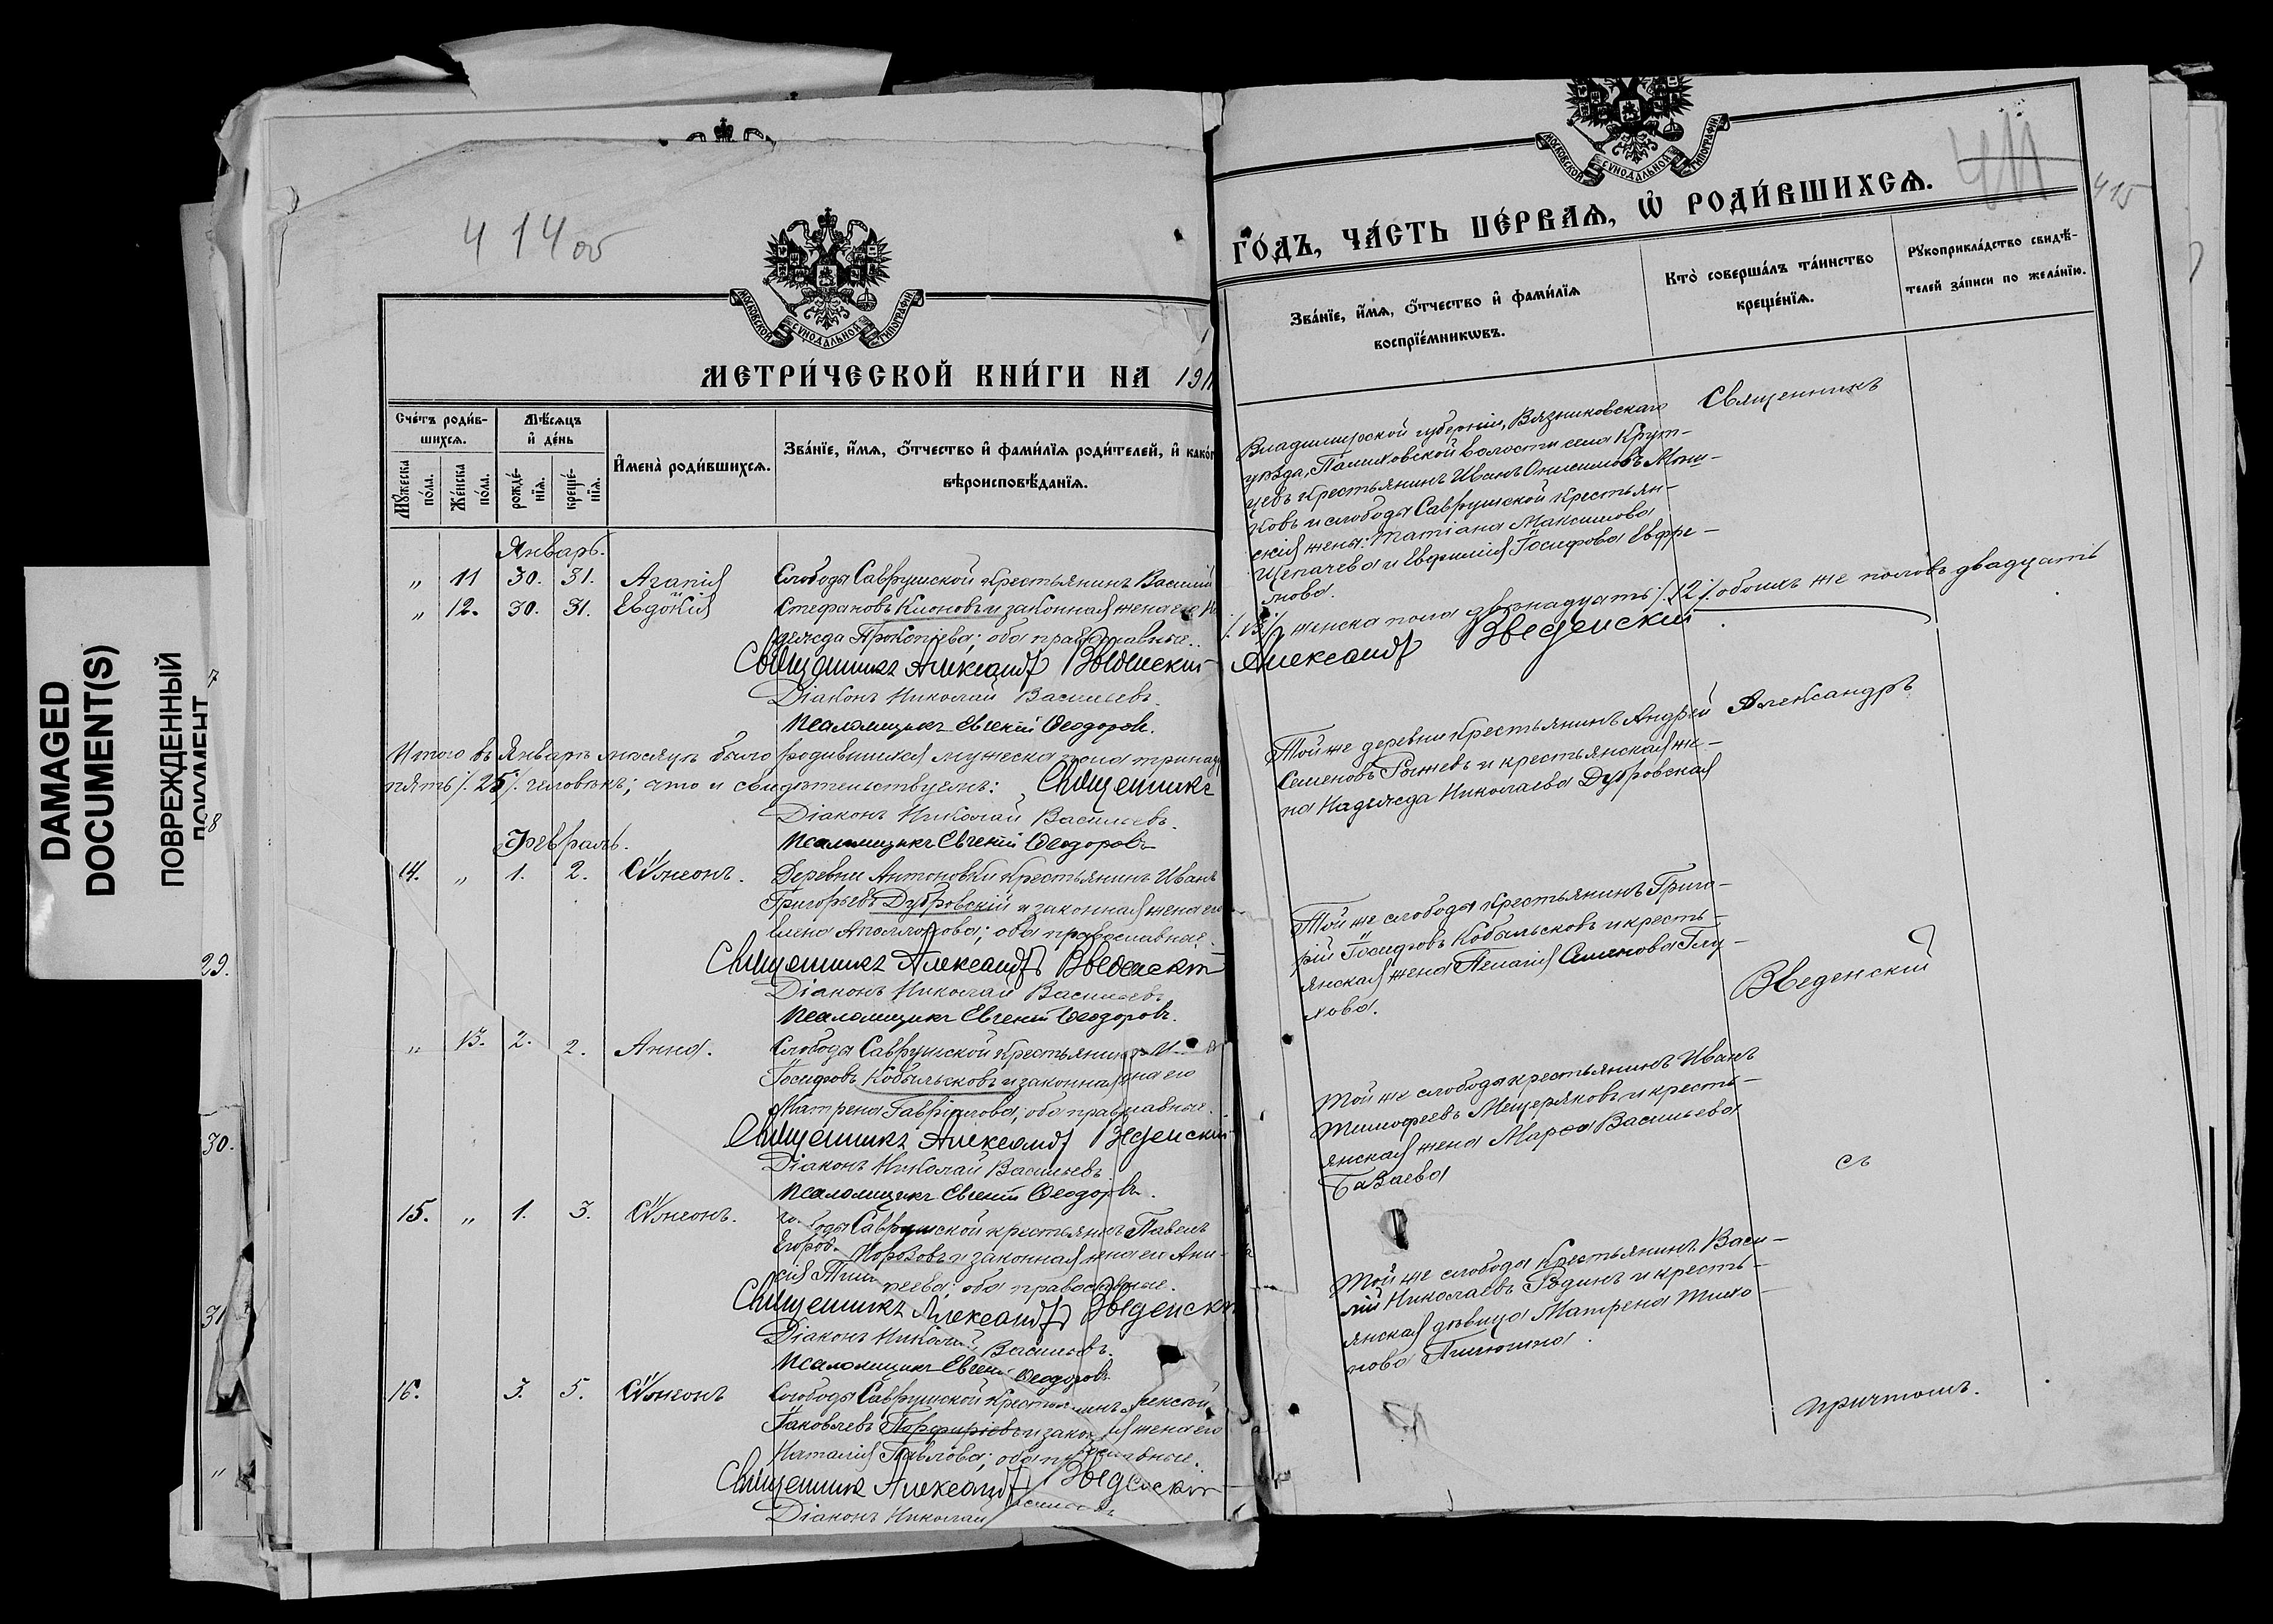 DAMAGED
DOCUMENT(S)
ПОВРЕЖДЕННЫЙ
ДОКУМЕНТ
414 об
МОСКОВСКОЙ СУНОДАЛЬНОЙ ТИПОГРАФІИ
МЕТРИ́ЧЕСКОЙ КНИ́ГИ НА 191
Сче́тъ роди́в-
шихсѧ.
Мꙋ́жеска
по́ла.
Же́нска
по́ла.
Мѣ́сѧцъ
и҆ де́нь
рожде́-
нїѧ.
креще́-
нїѧ.
И҆мена̀ роди́вшихсѧ.
Зва́нїе, и҆́мѧ, ѻ҆́тчество и҆ фами́лїѧ роди́телей, и҆ како́г
вѣроисповѣ́данїѧ.
Январь.
„ 11 30. 31. Агапія
и
„ 12. 30. 31. Евдокія
Слободы Саврушской крестьянинъ Василій
Стефановъ Клоновъ и законная жена его На
дежда Прокопіева; оба православные.
Священникъ Александръ Введенскій
Діаконъ Николай Васильевъ.
Псаломщикъ Евгеній Ѳеодоровъ.
Итого въ Январѣ мѣсяцѣ было родившихся мужеска пола тринад
пять /. 25 /. человѣкъ; что и свидѣтельствуемъ: Священникъ
Діаконъ Николай Васильевъ.
Псаломщикъ Евгеній Ѳеодоровъ
Февраль.
14. „ 1. 2. Сѵмеонъ.
Деревни Антоновки крестьянинъ Иванъ
Григорьевъ Дубровскій и законная жена его
Елена Аполлонова; оба православные.
Священникъ Александръ Введенскій
Діаконъ Николай Васильевъ
Псаломщикъ Евгеній Ѳеодоровъ.
„ 13. 2. 2. Анна.
Слободы Саврушской крестьянинъ
Іосифовъ Кобыльсковъ и законная жена его
Матрена Гавріилова; оба православные.
Священникъ Александръ Введенскій
Діаконъ Николай Васильевъ
Псаломщикъ Евгеній Ѳеодоровъ.
15. „ 1. 3. Сѵмеонъ.
Слободы Саврушской крестьянинъ Павелъ
Егоров. Морозовъ и законная жена его Ани-
сія Тим пеева; оба православные.
Священникъ Александръ Введенскій
Діаконъ Николай Васильевъ.
Псаломщикъ Евгеній Ѳеодоровъ
16. 3. 5. Сѵмеонъ
Слободы Саврушской крестьянинъ Алексѣй
Іаковлевъ Порфиріевъ и законная жена его
Наталія Павлова; оба православные.
Священникъ Александръ Введенскій
Діаконъ Николай Васильевъ
29.
30.
31
МОСКОВСКОЙ СУНОДАЛЬНОЙ ТИПОГРАФІИ
411
415
ГО́ДЪ, ЧА́СТЬ ПЕ́РВАѦ, Ѡ҆ РОДИ́ВШИХСѦ.
Зва́нїе, и҆́мѧ, ѻ҆́тчество и҆ фами́лїѧ
воспрїе́мникѡвъ.
Кто̀ соверша́лъ та́инство
креще́нїѧ.
Рꙋкоприкла́дство свидѣ́-
телей за́писи по жела́нїю.
Владимирской губерніи, Вязниковскаго
уѣзда, Палиховской волости села Крут-
цевъ крестьянинъ Иванъ Онисимовъ Мош-
ковъ и слободы Саврушской крестьян-
скія жены: Татіана Максимова
Щепачева и Евфимія Іосифова Ефре-
мова.
Священникъ
/. 13 /. женска пола двѣнадцать /. 12 /. обоихъ же половъ двадцать
Александръ Введенскій
Той же деревни крестьянинъ Андрей
Семеновъ Рыжевъ и крестьянская же-
на Надежда Николаева Дубровская
Александръ
Той же слободы крестьянинъ Григо-
рій Іосифовъ Кобыльсковъ и кресть-
янская жена Пелагія Семенова Глу-
хова.
Введенскій
Той же слободы крестьянинъ Иванъ
Тимофеевъ Мещеряковъ и кресть-
янская жена Марѳа Васильева
Базаева
съ
Той же слободы крестьянинъ Васи-
лій Николаевъ Родинъ и кресть-
янская дѣвица Матрена Тихо-
нова Пилюгина.
причтомъ.